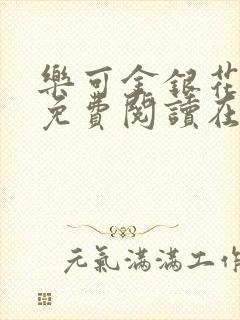 樂可金銀花
免費閱讀在
元氣滿滿工作